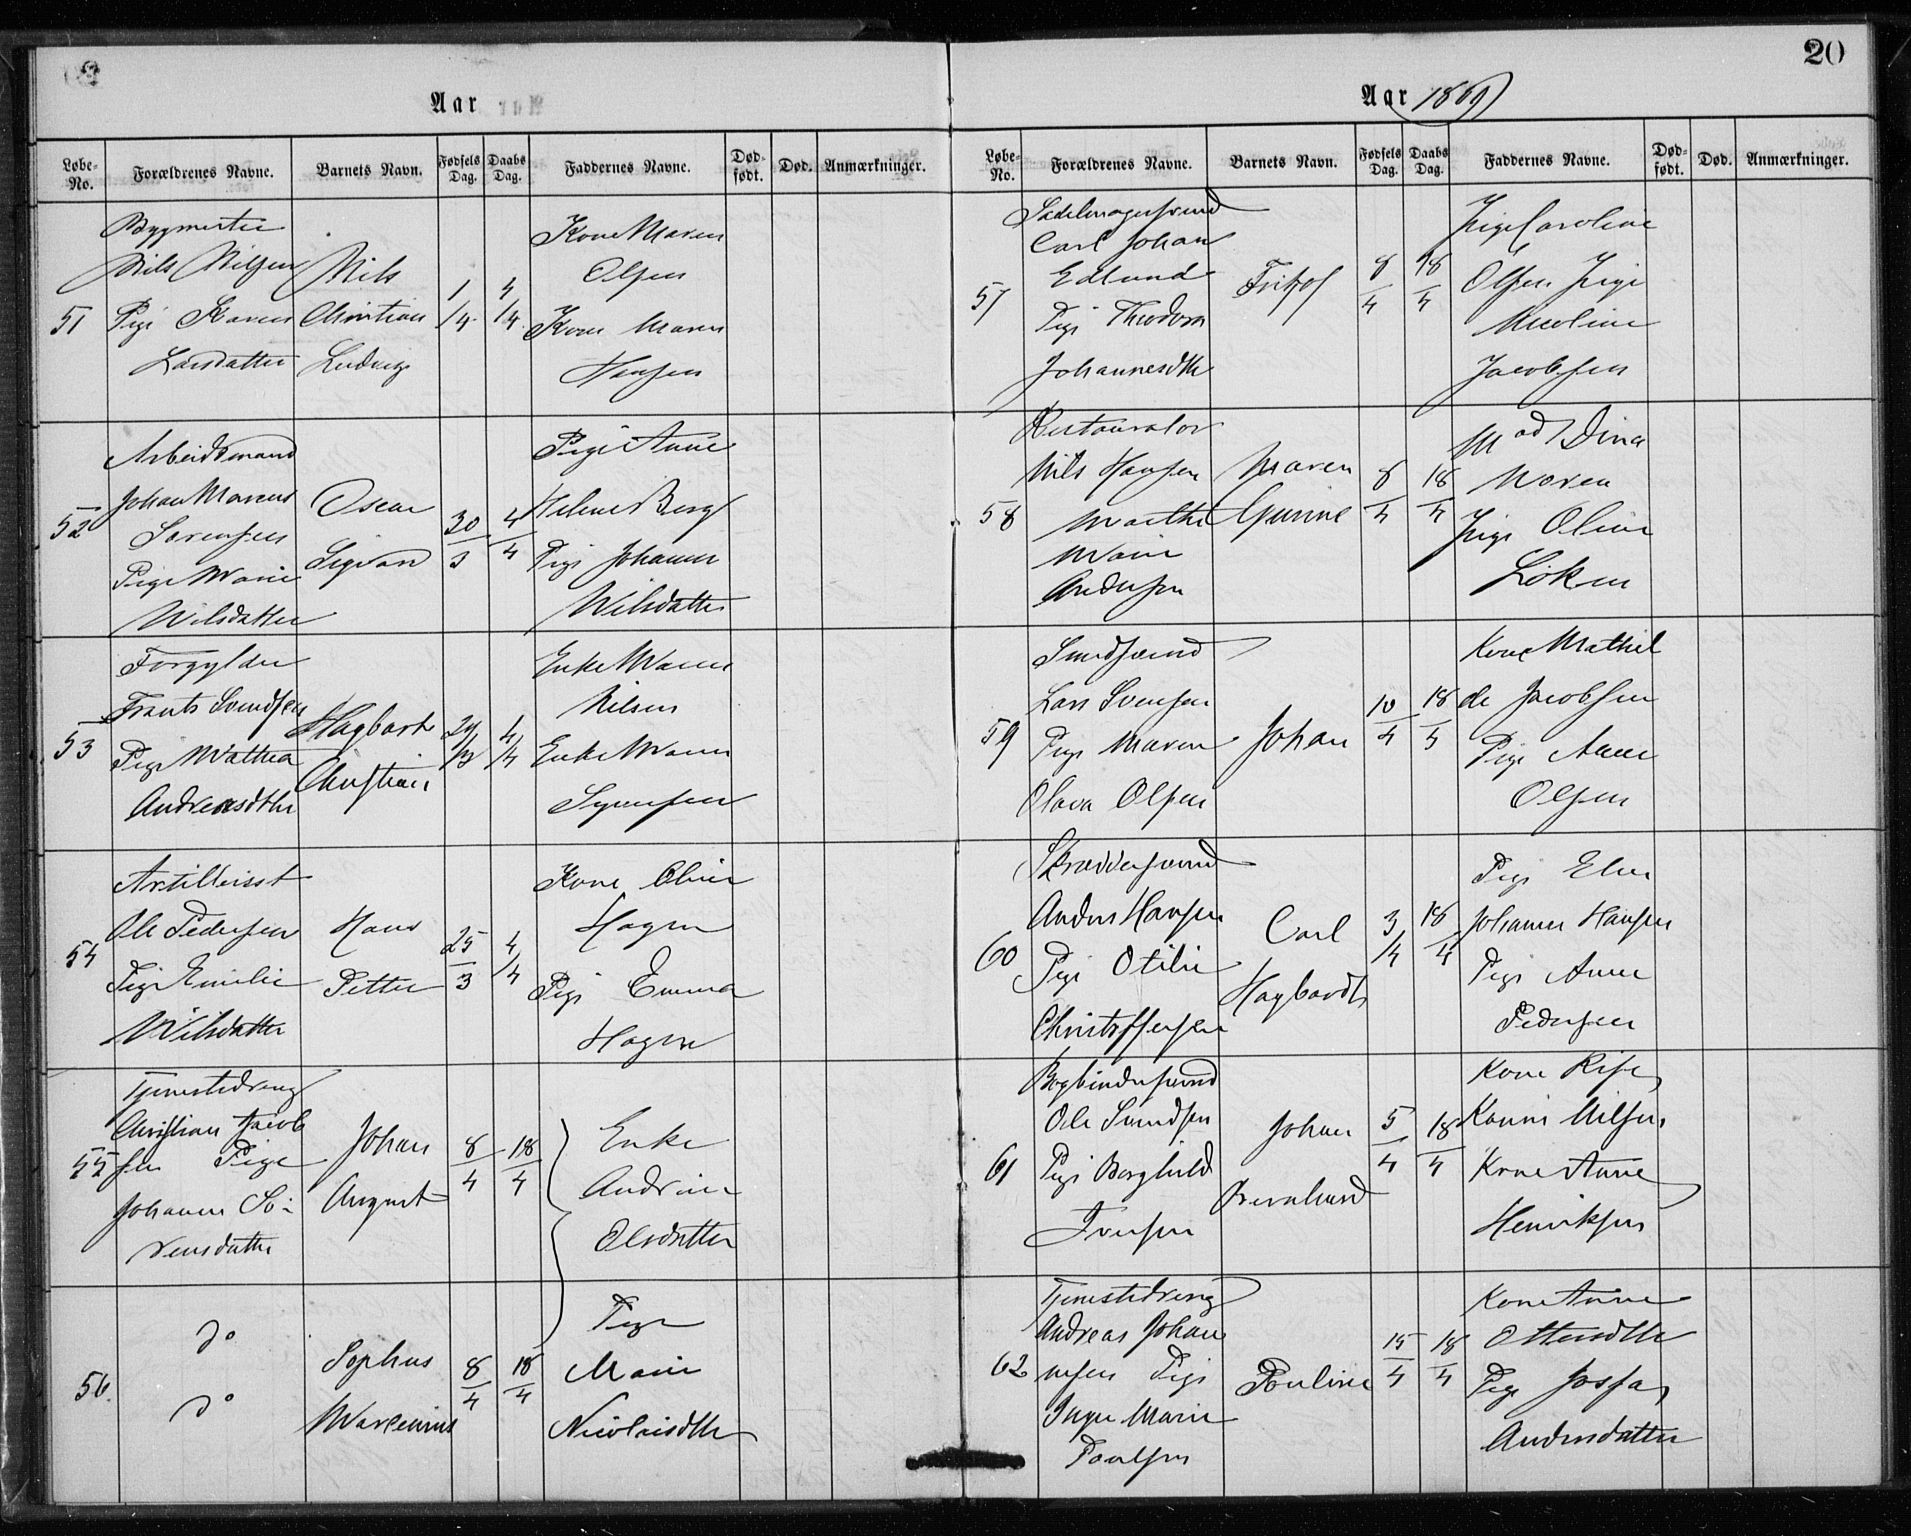 Aar
Løbe-No. Forældrenes Navne. Barnets Navn. Fødsels Dag. Daabs Dag. Faddernes Navne. Død-født. Død. Anmærkninger.
51
Bygmester
Nils Nilsen
Pige Karen
Larsdatter
Nils
Christian
Ludvig
1/4
4/4
Kone Maren
Olsen
Kone Maren
Hansen
52
Arbeidsmand
Johan Marcus
Sørensen
Pige Marie
Nilsdatter
Oscar
Sigvart
30/3
4/4
Pige Anne
Helene Berg
Pige Johanne
Nilsdatter
53
Forgylder
Frants Svendsen
Pige Mathea
Andreasdtr
Hagbart
Christian
29/3
4/4
Enke Maren
Nilsen
Enke Maren
54
Artillerist
Ole Pedersen
Pige Emilie
Nilsdatter
Hans
Petter
25/3
4/4
Kone Oline
Hagen
Pige Emma
Hagen
55
Tjenestedreng
Christian Jacob
sen Pige
Johanne Sø-
rensdatter
Johan
August
8/4
18/4
Enke
Andrine
Olsdatter
56
do
do
Sophus
Marcenius
8/4
18/4
Pige
Marie
Nicolaisdtr
20
Aar 1869
Løbe-No. Forældrenes Navne. Barnets Navn. Fødsels Dag. Daabs Dag. Faddernes Navne. Død-født. Død. Anmærkninger.
57
Sadelmagersvend
Carl Johan
Edlund
Pige Theodora
Johannesdtr
Fritjof
8/4
18/4
Pige Caroline
Olsen Pige
Jacobsen
58
Restauratør
Nils Hansen
Marthe
Marie
Andersen
Maren
Gurine
8/4
18/4
Mad Dina
Moren
Pige Oline
Løken
59
Smedsvend
Lars Svensen
Pige Maren
Olava Olsen
Johan
10/4
18/4
Kone Mathil
de Jacobsen
Pige Anne
Olsen
60
Skræddersvend
Anders Hansen
Pige Otilie
Christoffersen
Carl
Hagbardt
3/4
18/4
Pige Elen
Johanne Hansen
Pige Anne
Pedersen
61
Bogbindersvend
Ole Svendsen
Pige Borghild
Iversen
Johan
Bernhard
5/4
18/4
Kone
Karin Nilsen
Kone Anne
Henriksen
62
Tjenestedreng
Andreas Johan
nesen Pige
Inger Marie
Poulsen
Pouline
15/4
18/4
Kone Anne
Ottersdtr
Pige Josefa
Andersdatter